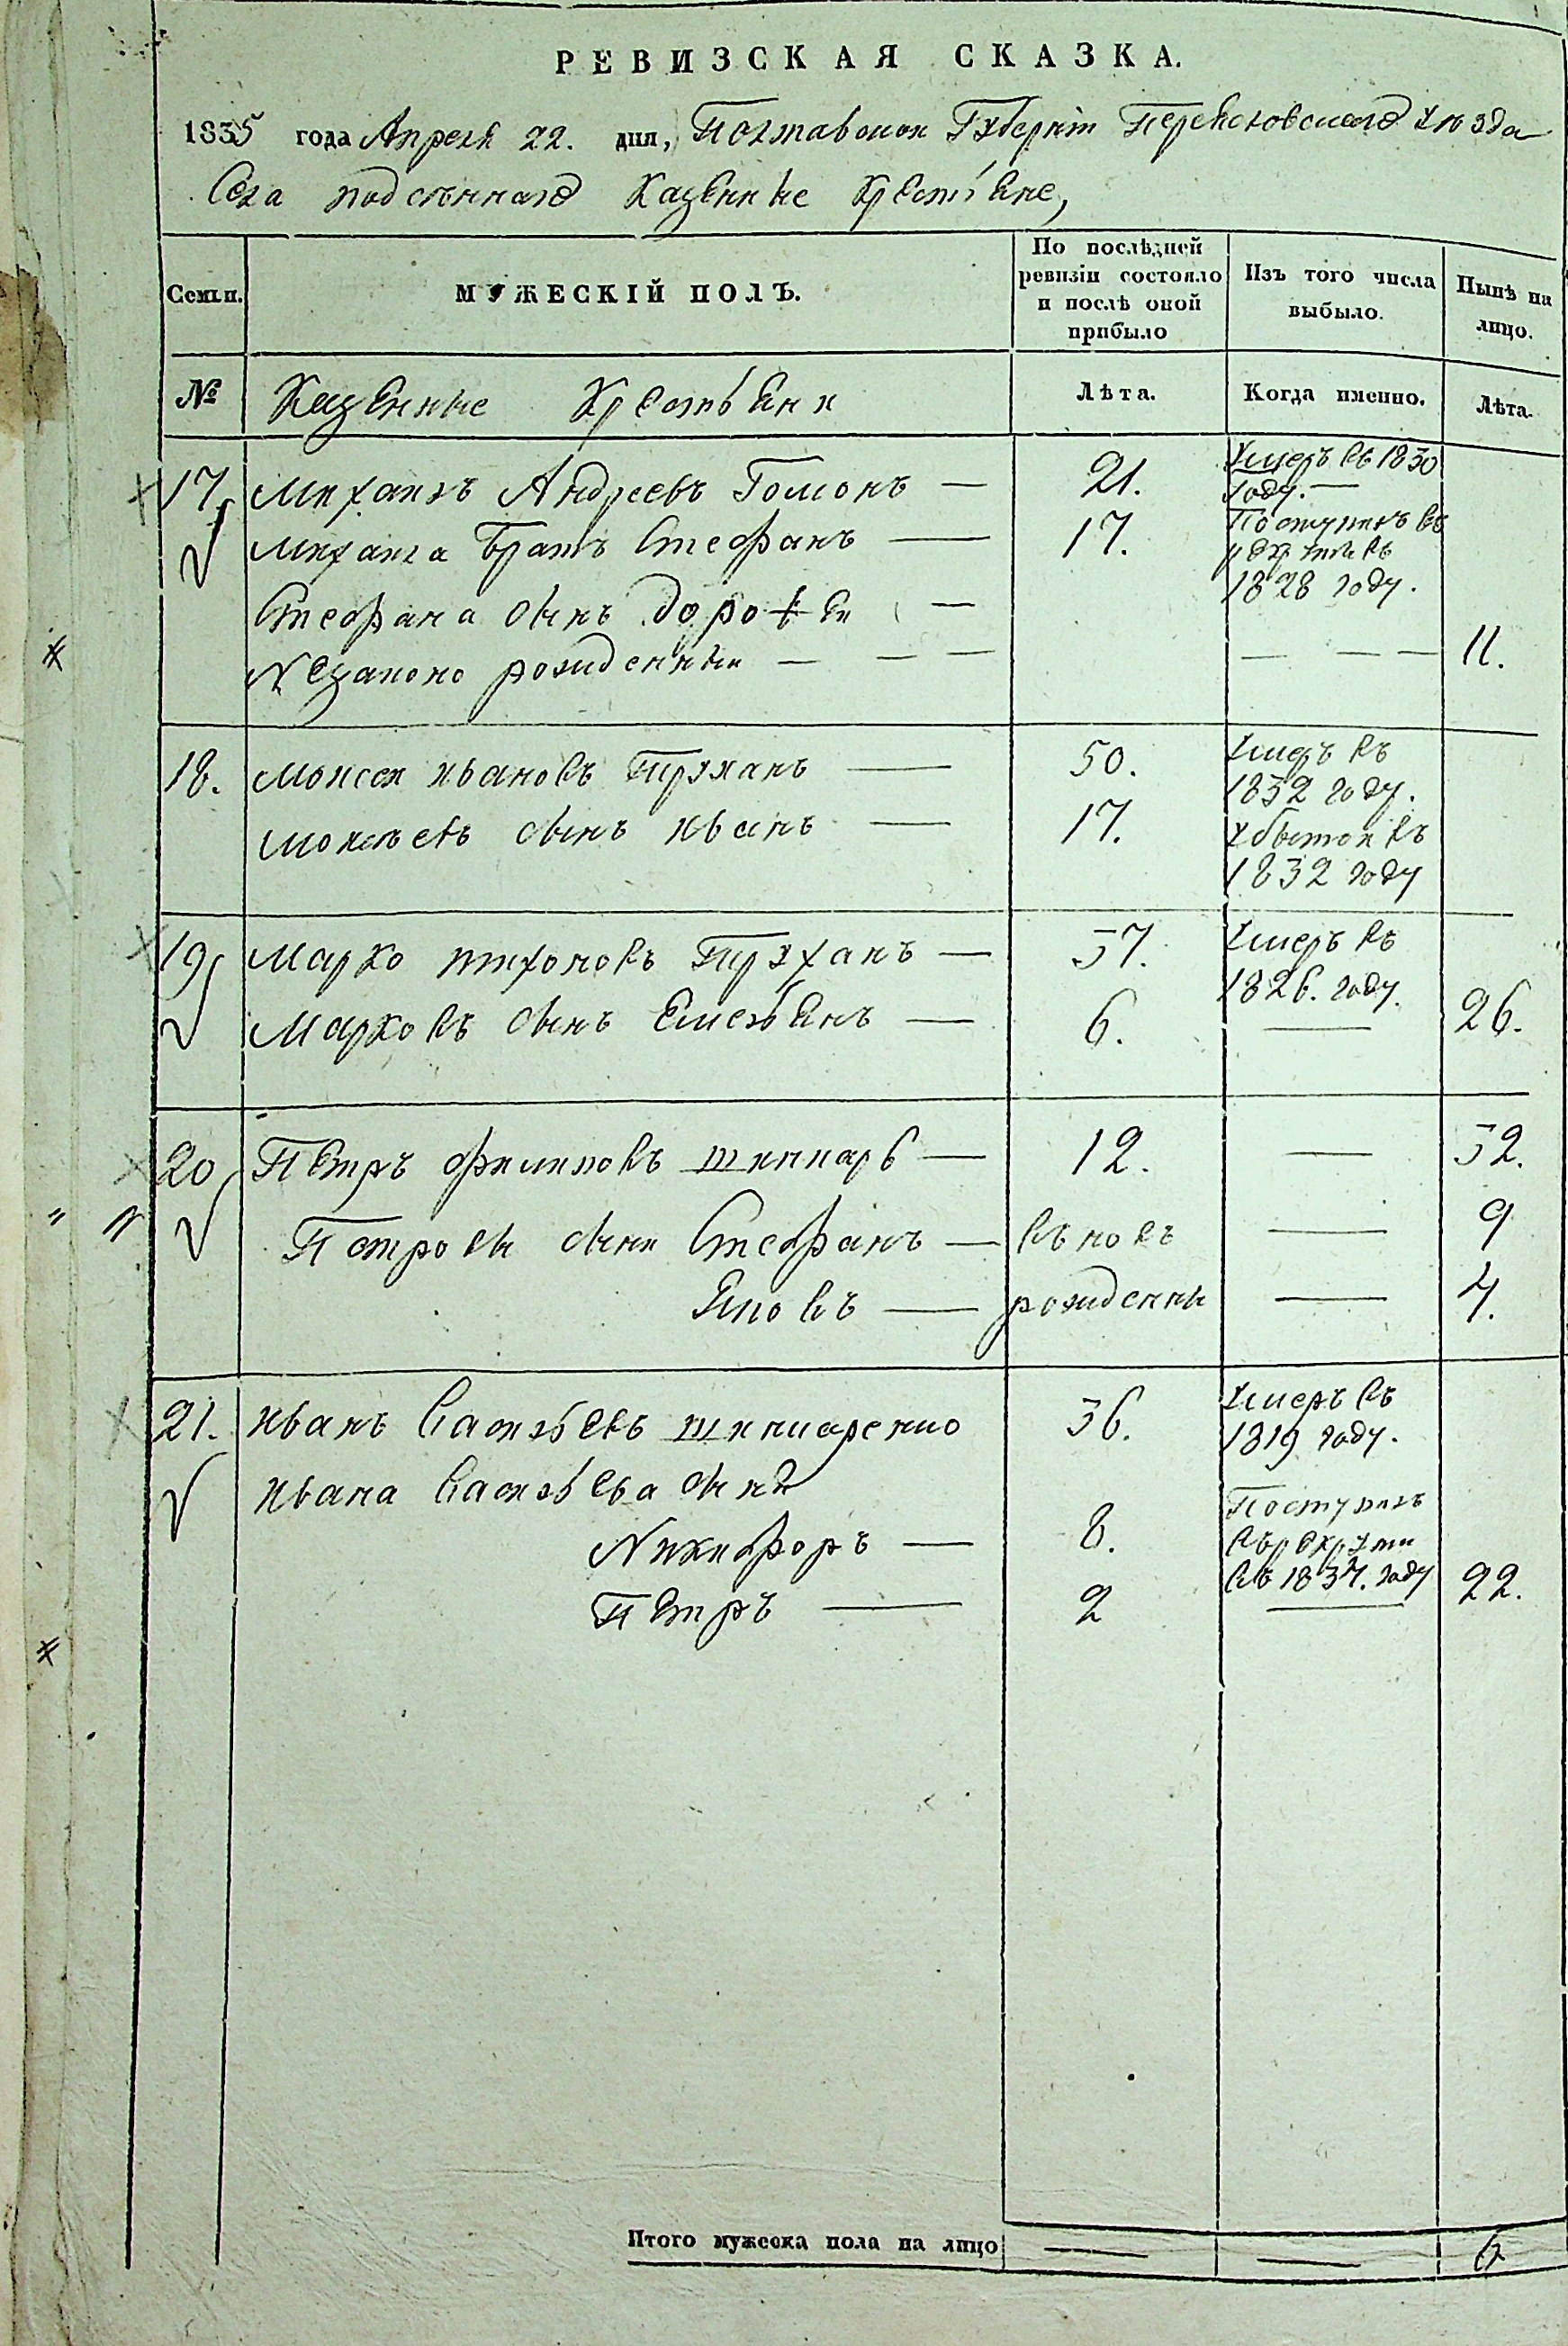 РЕВИЗСКАЯ СКАЗКА.
1835 года Апреля 22. дня, Полтавской Губерніи Переясловского Уезда
Села подсѣнного Казенные Крестьяне,
Семьи.
МУЖЕСКІЙ ПОЛЪ.
По послѣдней ревизіи состояло и послѣ оной прибыло
Изъ того числа выбыло.
Нынѣ на лицо.
№ Казенные Крестьяни Лѣта. Когда именно. Лѣта.
17. Михаилъ Андреевъ Гомонъ — 21. Умеръ въ 1830
году. —
Михаила братъ Стефанъ — 17. Поступилъ въ
рекруты въ
1828 году.
Стефана сынъ дорофей —
Незаконо рожденный — — — — — — 11.
18. Моисей Ивановъ Труханъ — 50. Умеръ въ
1832 году.
Моисѣевъ сынъ Иванъ — 17. Убытой въ
1832 году
19. Марко тихоновъ Трухан — 37. Умеръ въ
1826. году.
Марковъ сынъ Емельянъ — 6. — 26.
20 Петръ филиповъ шинкарь — 12. — 32.
Петровы сыни Стефанъ — вьновъ — 9
Яковъ — рожденны — 4.
21. Иванъ Савельевъ шинкаренко 36. Умеръ въ
1819 году.
Ивана Савельева сыны
Никифоръ — 8. Поступилъ
въ рекруты
въ 1834. году
Петръ — 2 — 22.
Итого мужеска пола на лицо — — 6